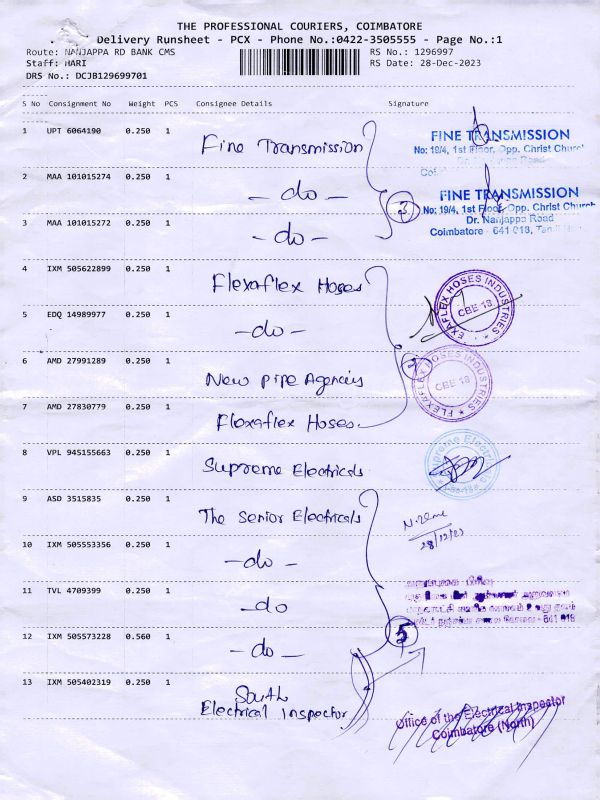 THE PROFESSIONAL COURIERS, COIMBATORE
Delivery Runsheet - PCX - Phone No.:0422-3505555 - Page No.:1
Route: NANJAPPA RD BANK CMS RS No.: 1296997
Staff: HARI RS Date: 28-Dec-2023
DRS No.: DCJB129699701
S No Consignment No Weight PCS Consignee Details Signature
1 UPT 6064190 0.250 1 Fine Transmission
FINE TRANSMISSION
No: 19/4, 1st Floor, Opp. Christ Church
Dr. Nanjappa Road
2 MAA 101015274 0.250 1 - do -
3
FINE TRANSMISSION
No: 19/4, 1st Floor, Opp. Christ Church
Dr. Nanjappa Road
Coimbatore - 641 018,
3 MAA 101015272 0.250 1 - do -
4 IXM 505622899 0.250 1 Flexaflex Hoses
EXAFLEX HOSES INDUSTRIES
CBE 18
5 EDQ 14989977 0.250 1 - do -
6 AMD 27991289 0.250 1 New Pipe Agencies
FLEXAFLEX HOSES INDUSTRIES
CBE 18
7 AMD 27830779 0.250 1 Flexaflex Hoses
8 VPL 945155663 0.250 1 Supreme Electricals
9 ASD 3515835 0.250 1 The Senior Electricals
28/12/23
10 IXM 505553356 0.250 1 - do -
11 TVL 4709399 0.250 1 - do
641 018
12 IXM 505573228 0.560 1 - do -
5
13 IXM 505402319 0.250 1 South
Electrical Inspector
Office of the Electrical Inspector
Coimbatore (North)